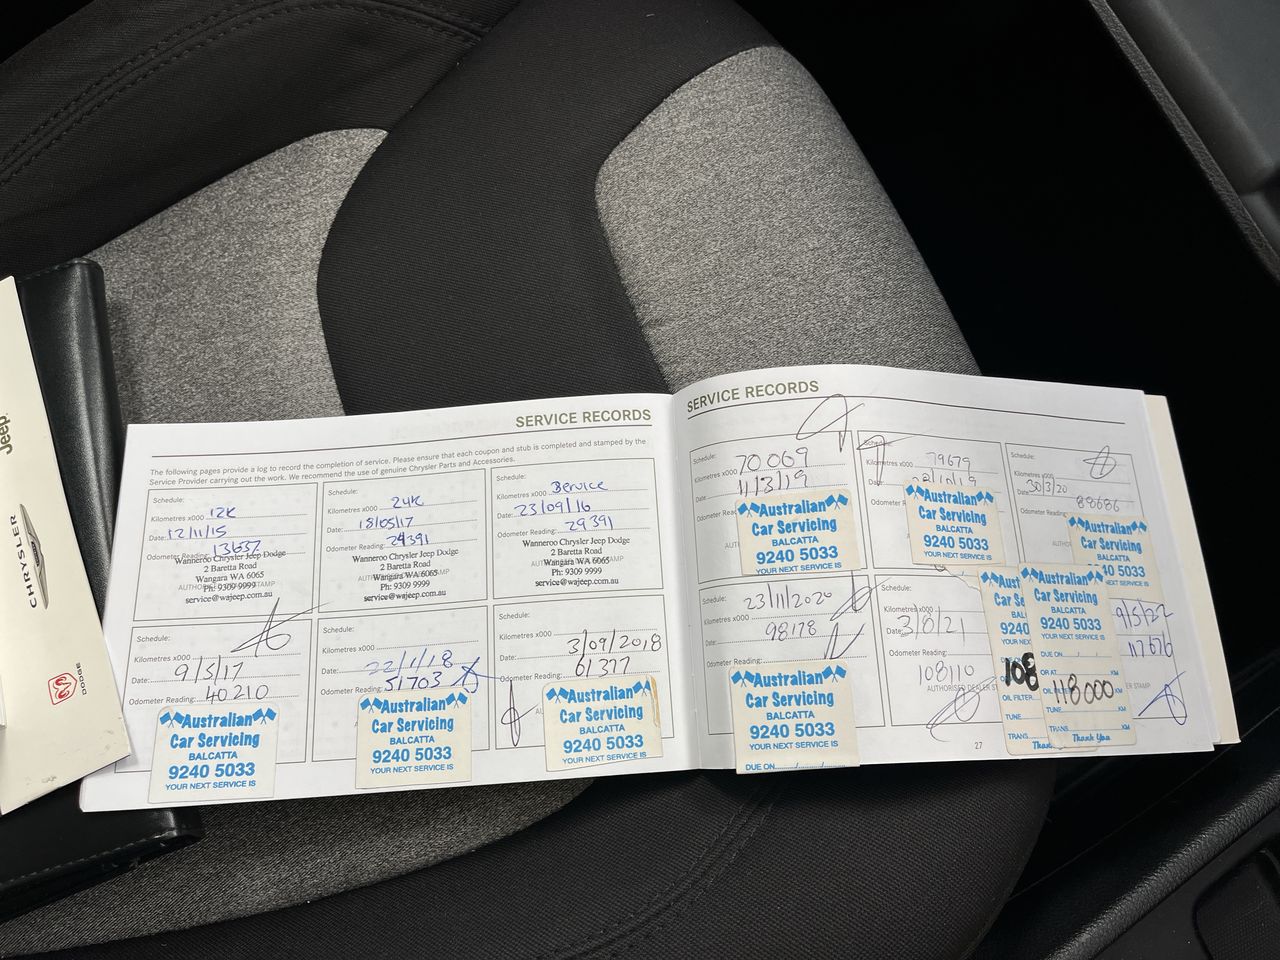 Jeep
CHRYSLER
DODGE
SERVICE RECORDS
The following pages provide a log to record the completion of service. Please ensure that each coupon and stub is completed and stamped by the
Service Provider carrying out the work. We recommend the use of genuine Chrysler Parts and Accessories.
Schedule:
Kilometres x000 12K
Date: 12/11/15
Odometer Reading: 13637
Wanneroo Chrysler Jeep Dodge
2 Baretta Road
Wangara WA 6065
Ph: 9309 9999
service@wajeep.com.au
Schedule:
Kilometres x000 24K
Date: 18/05/17
Odometer Reading: 24391
Wanneroo Chrysler Jeep Dodge
2 Baretta Road
Wangara WA 6065
Ph: 9309 9999
service@wajeep.com.au
Schedule:
Kilometres x000 Service
Date: 23/09/16
Odometer Reading: 29391
Wanneroo Chrysler Jeep Dodge
2 Baretta Road
Wangara WA 6065
Ph: 9309 9999
service@wajeep.com.au
Schedule:
Kilometres x000
Date: 9/5/17
Odometer Reading: 40210
Australian
Car Servicing
BALCATTA
9240 5033
YOUR NEXT SERVICE IS
Schedule:
Kilometres x000
Date: 22/1/18
Odometer Reading: 51703
Australian
Car Servicing
BALCATTA
9240 5033
YOUR NEXT SERVICE IS
Schedule:
Kilometres x000
Date: 3/09/2018
Odometer Reading: 61377
Australian
Car Servicing
BALCATTA
9240 5033
YOUR NEXT SERVICE IS
SERVICE RECORDS
Schedule:
Kilometres x000 70069
Date 11/3/19
Australian
Car Servicing
BALCATTA
9240 5033
YOUR NEXT SERVICE IS
Schedule:
Kilometres x000 79679
Australian
Car Servicing
BALCATTA
9240 5033
YOUR NEXT SERVICE IS
Schedule:
Kilometres x000
Date 30/3/20
88686
Australian
Car Servicing
BALCATTA
5033
NEXT SERVICE IS
Schedule:
23/11/2020
Kilometres x000
Date: 98178
Odometer Reading:
Australian
Car Servicing
BALCATTA
9240 5033
YOUR NEXT SERVICE IS
DUE ON
Schedule:
Kilometres x000
Date: 3/8/21
Odometer Reading:
108110
AUTHORISED DEALER
108
OIL FILTER
TUNE
TRANS
Australian
Car Servicing
BALCATTA
9240 5033
YOUR NEXT SERVICE IS
DUE ON
OR AT KM
118000
TUNE KM
TRANS KM
Thank You
9/5/22
117676
27